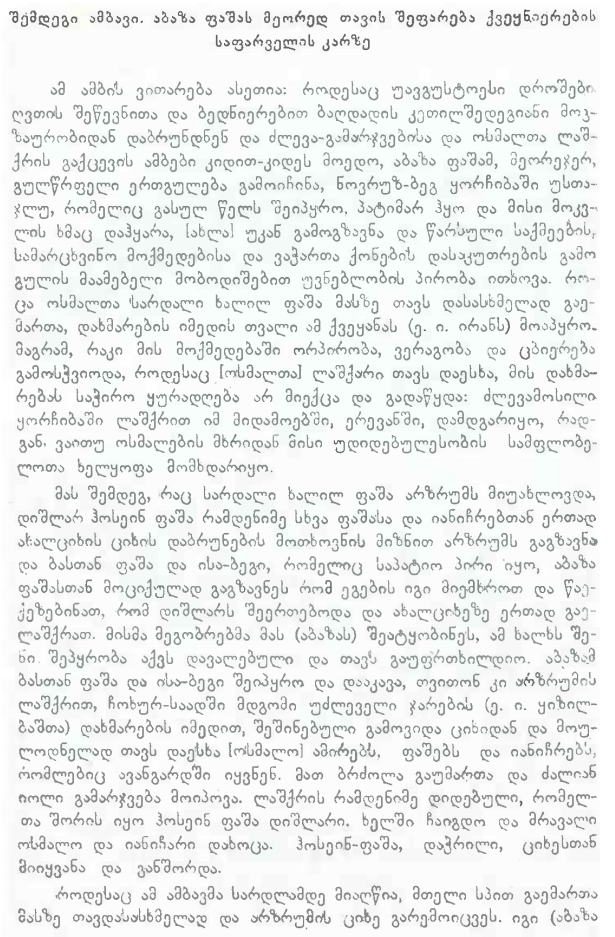 შემდეგი ამბავი. აბაზა ფაშას მეორედ თავის შეფარება ქვეყნიერების
საფარველის კარზე
ამ ამბის ვითარება ასეთია: როდესაც უავგუსტოესი დროშები
ღვთის შეწევნითა და ბედნიერებით ბაღდადის კეთილშედეგიანი მოგ-
ზაურობიდან დაბრუნდნენ და ძლევა-გამარჯვებისა და ოსმალთა ლაშ-
ქრის გაქცევის ამბები კიდით-კიდეს მოედო, აბაზა ფაშამ, მეორეჯერ,
გულწრფელი ერთგულება გამოიჩინა, ნოვრუზ-ბეგ ყორჩიბაში უსთა-
ჯლუ, რომელიც გასულ წელს შეიპყრო, პატიმარ ჰყო და მისი მოკვ-
ლის ხმაც დაჰყარა, [ახლა] უკან გამოგზავნა და წარსული საქმეების,
სამარცხვინო მოქმედებისა და ვაჭართა ქონების დასაკუთრების გამო
გულის მაამებელი მობოდიშებით უვნებლობის პირობა ითხოვა. რო-
ცა ოსმალთა სარდალი ხალილ ფაშა მასზე თავს დასასხმელად გაე-
მართა, დახმარების იმედის თვალი ამ ქვეყანას (ე. ი. ირანს) მოაპყრო.
მაგრამ, რაკი მის მოქმედებაში ორპირობა, ვერაგობა და ცბიერება
გამოსჭვიოდა, როდესაც [ოსმალთა] ლაშქარი თავს დაესხა, მის დახმა-
რებას საჭირო ყურადღება არ მიექცა და გადაწყდა: ძლევამოსილი
ყორჩიბაში ლაშქრით იმ მიდამოებში, ერევანში, დამდგარიყო, რად-
გან. ვაითუ ოსმალების მხრიდან მისი უდიდებულესობის სამფლობე-
ლოთა ხელყოფა მომხდარიყო.
მას შემდეგ, რაც სარდალი ხალილ ფაშა არზრუმს მიუახლოვდა,
დიშლარ ჰოსეინ ფაშა რამდენიმე სხვა ფაშასა და იანიჩრებთან ერთად
ახალციხის ციხის დაბრუნების მოთხოვნის მიზნით არზრუმს გაგზავნა
და ბასთან ფაშა და ისა-ბეგი, რომელიც საპატიო პირი იყო, აბაზა
ფაშასთან მოციქულად გაგზავნეს რომ ეგების იგი მიემხროთ და წაე-
ქეზებინათ, რომ დიშლარს შეერთებოდა და ახალციხეზე ერთად გაე-
ლაშქრათ. მისმა მეგობრებმა მას (აბაზას) შეატყობინეს, ამ ხალხს შე-
ნი შეპყრობა აქვს დავალებული და თავს გაუფრთხილდიო. აბაზამ
ბასთან ფაშა და ისა-ბეგი შეიპყრო და დააკავა, თვითონ კი არზრუმის
ლაშქრით, ჩოხურ-საადში მდგომი უძლეველი ჯარების (ე. ი. ყიზილ-
ბაშთა) დახმარების იმედით, შეშინებული გამოვიდა ციხიდან და მოუ-
ლოდნელად თავს დაესხა [ოსმალო] ამირებს, ფაშებს და იანიჩრებს,
რომლებიც ავანგარდში იყვნენ. მათ ბრძოლა გაუმართა და ძალიან
იოლი გამარჯვება მოიპოვა. ლაშქრის რამდენიმე დიდებული, რომელ-
თა შორის იყო ჰოსეინ ფაშა დიშლარი. ხელში ჩაიგდო და მრავალი
ოსმალო და იანიჩარი დახოცა. ჰოსეინ-ფაშა, დაჭრილი, ციხესთან
მიიყვანა და განშორდა.
როდესაც ამ ამბავმა სარდლამდე მიაღწია, მთელი სპით გაემართა
მასზე თავდასასხმელად და არზრუმის ციხე გარემოიცვეს. იგი (აბაზა